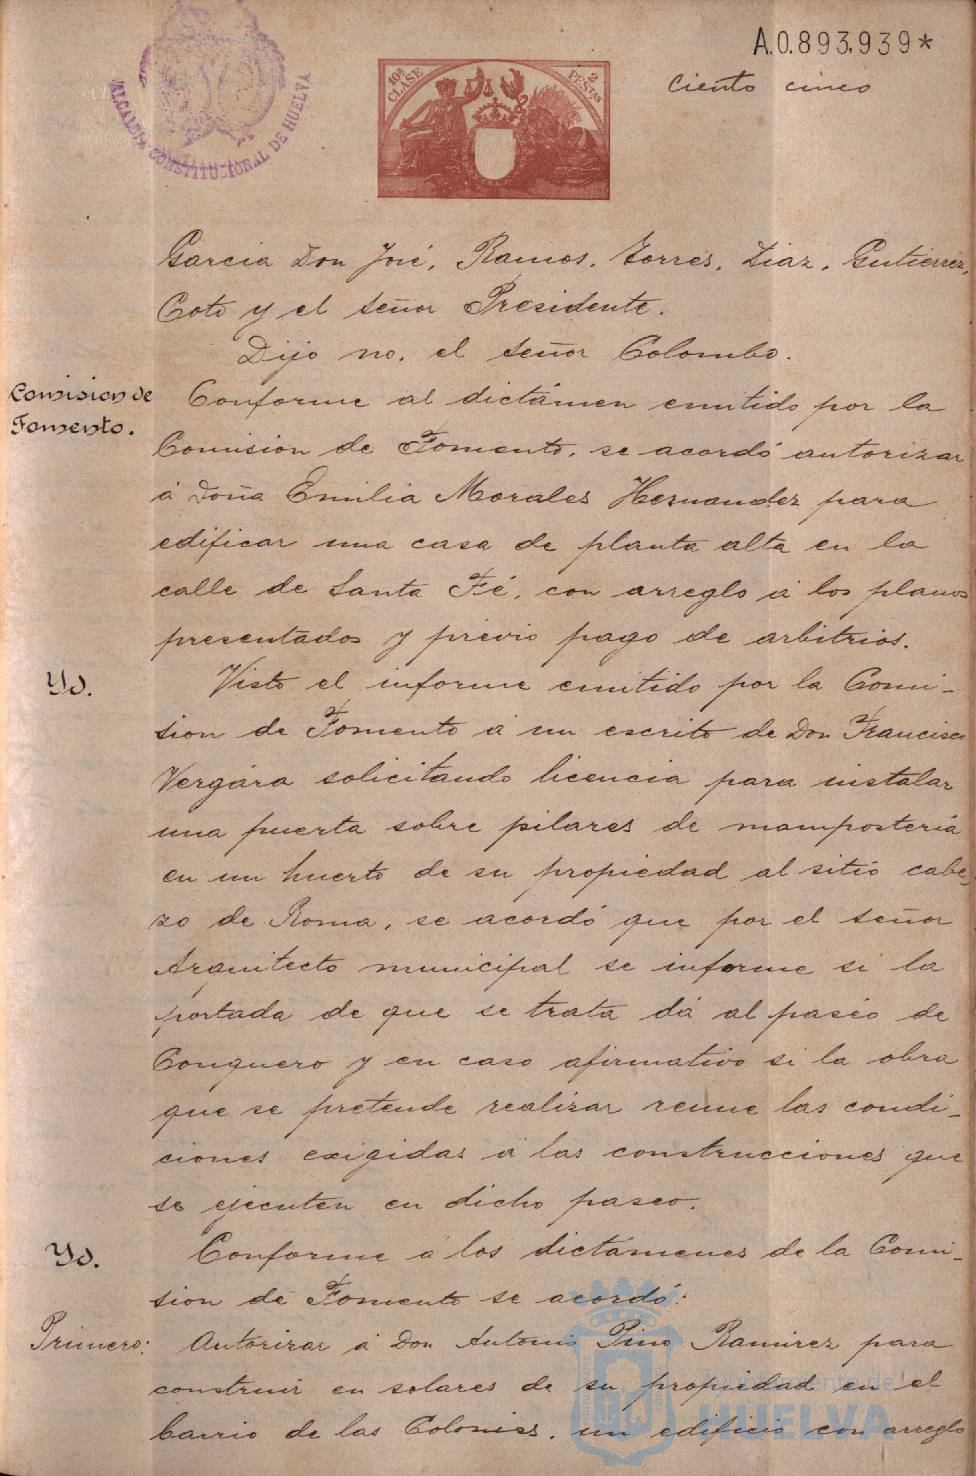 A.0.893,939*
Ciento cinco
ALCALDIA CONSTITUCIONAL DE HUELVA
10ª CLASE
2 PESTAS
Garcia Don José, Ramos, Torres, Diaz, Gutierrez,
Coto y el señor Presidente.
Dijo no, el señor Colombo.
Comision de
Fomento.
Conforme al dictámen emitido por la
Comisión de Fomento, se acordó autorizar
á Doña Emilia Morales Hernandez para
edificar una casa de planta alta en la
calle de Santa Fé, con arreglo á los planos
presentados y prévio pago de arbitrios.
Yd.
Visto el informe emitido por la Comi-
sion de Fomento á un escrito de Don Francisco
Vergára solicitando licencia para instalar
una puerta sobre pilares de mampostería
en un huerto de su propiedad al sitio cabe-
zo de Roma, se acordó que por el señor
Arquitecto municipal se informe si la
portada de que se trata dá al paseo de
Conquero y en caso afirmativo si la obra
que se pretende realizar reune las condi-
ciones exigidas á las construcciones que
se ejecuten en dicho paseo.
Yd.
Conforme á los dictámenes de la Comi-
sion de Fomento se acordó:
Primero:
Autorizar á Don Antonio Pino Ramirez para
construir en solares de su propiedad en el
barrio de las Colonias, un edificio con arreglo
Ayuntamiento de
HUELVA